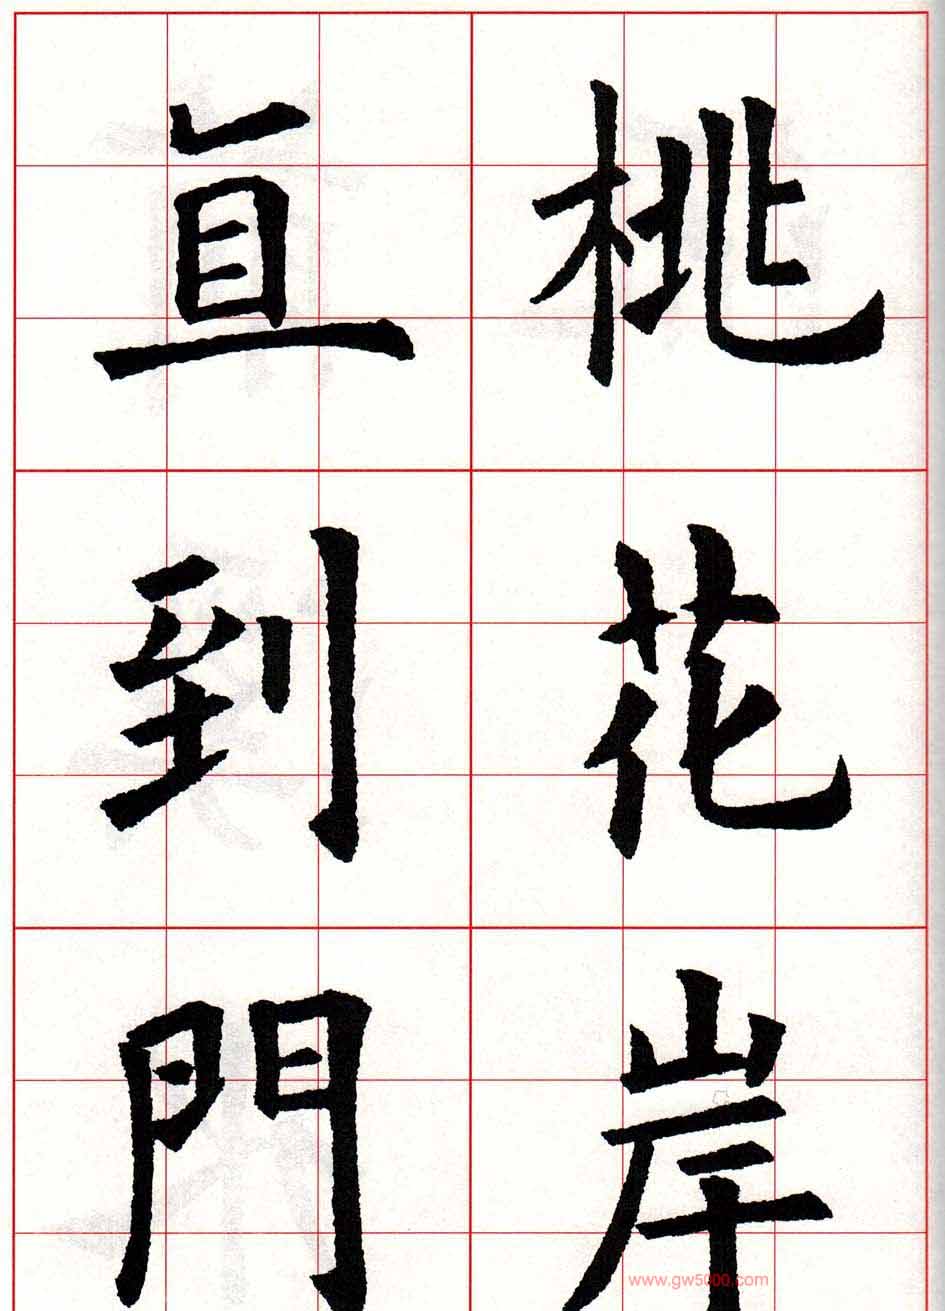 桃花岸
直到門
www.gw5000.com